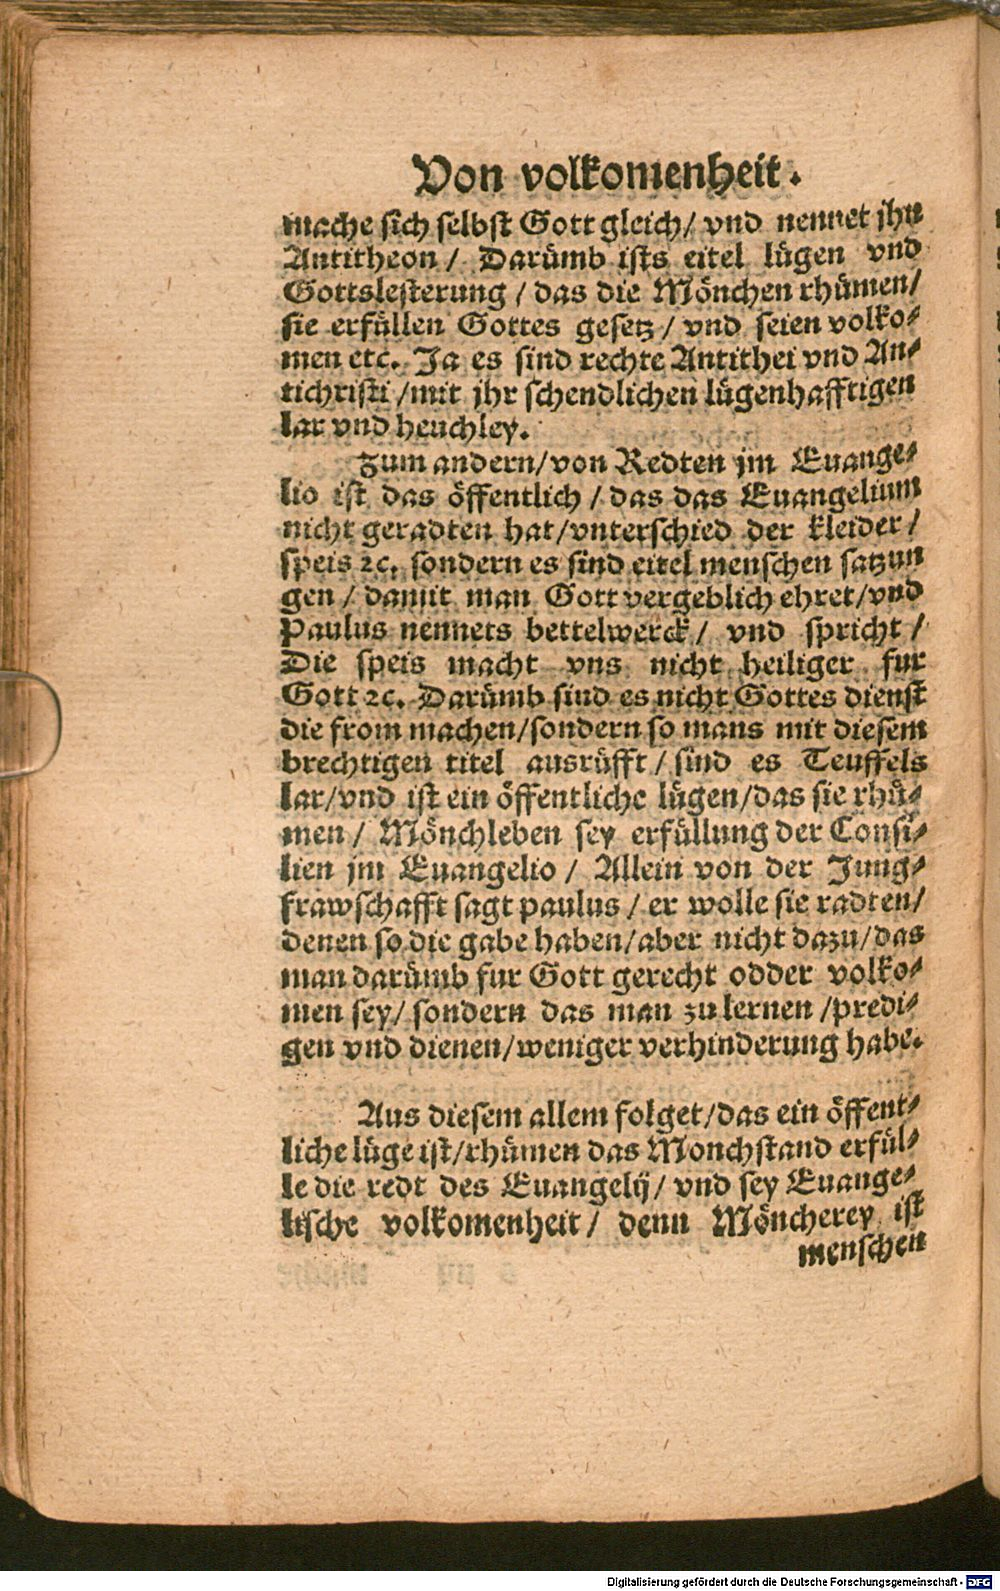 Von volkomenheit.
mache sich selbst Gott gleich/ vnd nennet jhn
Antitheon/ Darümb ists eitel lügen vnd
Gottslesterung/ das die Mönchen rhümen/
sie erfüllen Gottes gesetz/ vnd seien volko-
men etc. Ja es sind rechte Antithei vnd An-
tichristi/ mit jhr schendlichen lügenhafftigen
lar vnd heuchley.
Zum andern/ von Redten jm Euange-
lio ist das öffentlich/ das das Euangelium
nicht geradten hat/ vnterschied der kleider/
speis ꝛc. sondern es sind eitel menschen satzun
gen/ damit man Gott vergeblich ehret/ vnd
Paulus nennets bettelwerck/ vnd spricht/
Die speis macht vns nicht heiliger fur
Gott ꝛc. Darümb sind es nicht Gottes dienst
die from machen/ sondern so mans mit diesem
brechtigen titel ausrüfft/ sind es Teuffels
lar/ vnd ist ein öffentliche lügen/ das sie rhü-
men/ Mönchleben sey erfüllung der Consi-
lien jm Euangelio/ Allein von der Jung-
frawschafft sagt paulus/ er wolle sie radten/
denen so die gabe haben/ aber nicht dazu/ das
man darümb fur Gott gerecht odder volko-
men sey/ sondern das man zu lernen/ predi-
gen vnd dienen/ weniger verhinderung habe.
Aus diesem allem folget/ das ein öffent-
liche lüge ist/ rhümen das Monchstand erfül-
le die redt des Euangelij/ vnd sey Euange-
lische volkomenheit/ denn Möncherey ist
menschen
Digitalisierung gefördert durch die Deutsche Forschungsgemeinschaft - DFG